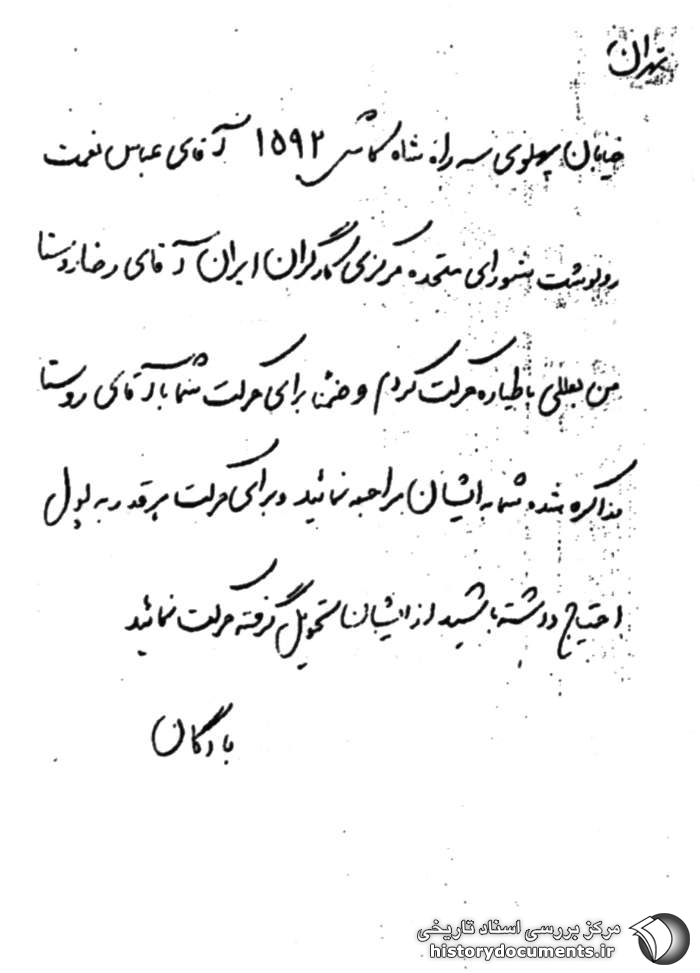 تهران
خیابان پهلوی سه راه شاه کاشی ۱۵۹۲ آقای عباس نعمت
رونوشت شورای متحده مرکزی کارگران ایران آقای رضا روستا
من بعللی با طیاره حرکت کردم و ضمنا برای حرکت شما با آقای روستا
مذاکره شده شما به ایشان مراجعه نمائید و برای حرکت هر قدر به پول
احتیاج داشته باشید از ایشان تحویل گرفته حرکت نمائید
بادگان
مرکز بررسی اسناد تاریخی
historydocuments.ir